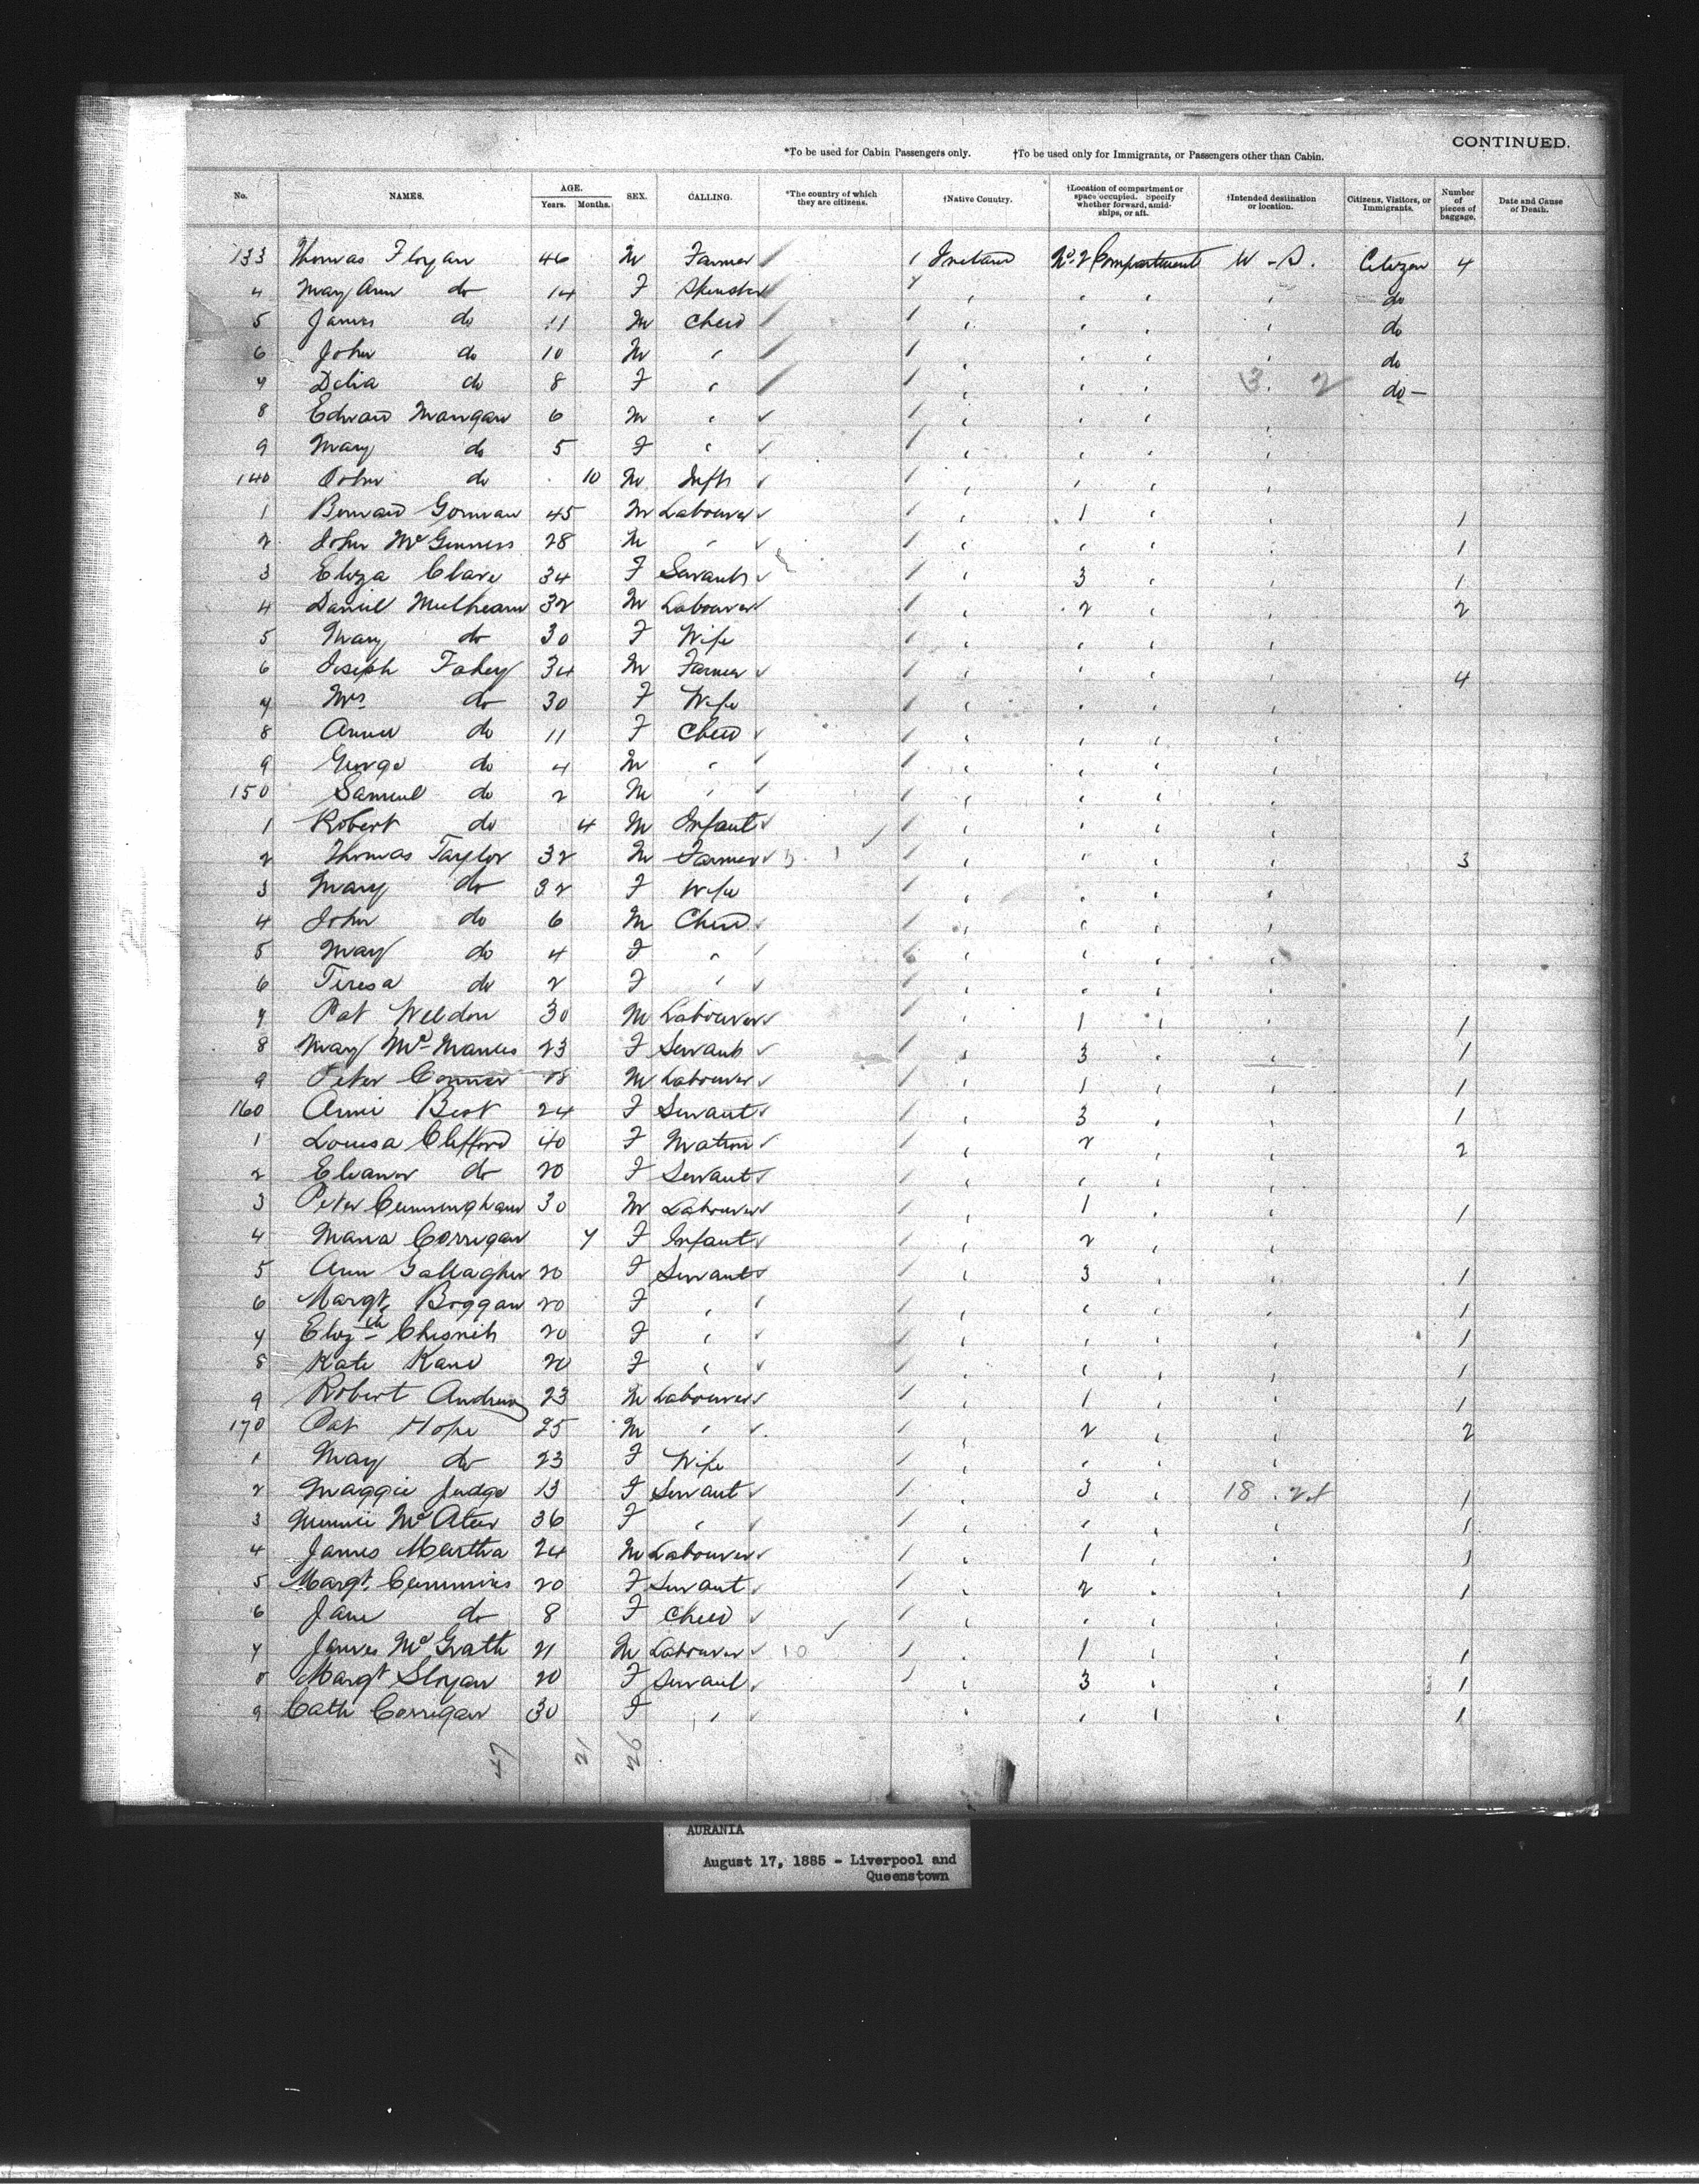 CONTINUED.
*To be used for Cabin Passengers only. †To be used only for Immigrants, or Passengers other than Cabin.
No. NAMES. AGE. Years. Months. SEX. CALLING. *The country of which they are citizens. †Native Country. †Location of compartment or space occupied. Specify whether forward, amidships, or aft. †Intended destination or location. Citizens, Visitors, or Immigrants. Number of pieces of baggage. Date and Cause of Death.
133 Thomas 46 M Farmer Ireland No. 2 Compartment U.S. Citizen 4
4 Mary Ann do 14 F Spinster do
5 James do 11 M Child do
6 John do 10 M " do
7 Delia do 8 F " 3. 2 do
8 Edward Mangan 6 M "
9 Mary do 5 F "
140 John do 10 M Inft
1 Bernard Gorman 45 M Labourer 1 1
2 John McGinness 28 M " 1
3 Eliza Clare 34 F Servant 3 1
4 Daniel Mulhearn 32 M Labourer 2 2
5 Mary do 30 F Wife
6 Joseph Fahey 34 M Farmer 4
7 Mrs do 30 F Wife
8 Annie do 11 F Child
9 George do 4 M "
150 Samuel do 2 M "
1 Robert do 4 M Infant
2 Thomas Taylor 32 M Farmer 3
3 Mary do 32 F Wife
4 John do 6 M Child
5 Mary do 4 F "
6 Teresa do 2 F "
7 Pat Weldon 30 M Labourer 1 1
8 Mary 23 F Servant 3 1
9 Peter Connor 18 M Labourer 1 1
160 Annie Best 24 F Servant 3 1
1 Louisa Clifford 40 F Matron 2 2
2 Eleanor do 20 F Servant
3 Peter Cunningham 30 M Labourer 1 1
4 Maria Corrigan 7 F Infant 2
5 Ann Gallagher 20 F Servant 3 1
6 Margt Boggan 20 F " 1
7 Elizth 20 F " 1
8 Kate Kane 20 F " 1
9 Robert Andrew 23 M Labourer 1 1
170 Pat Hope 25 M " 2 2
1 Mary do 23 F Wife
2 Maggie Judge 13 F Servant 3 18 1
3 Minnie McAteer 36 F " 1
4 James Martha 24 M Labourer 1 1
5 Margt. Cummins 20 F Servant 2 1
6 Jane do 8 F Child
7 James McGrath 21 M Labourer 10 1 1
8 Margt Sloyan 20 F Servant 3 1
9 Cath Corrigan 30 F " 1
47 21 26
AURANIA
August 17, 1885 - Liverpool and
Queenstown